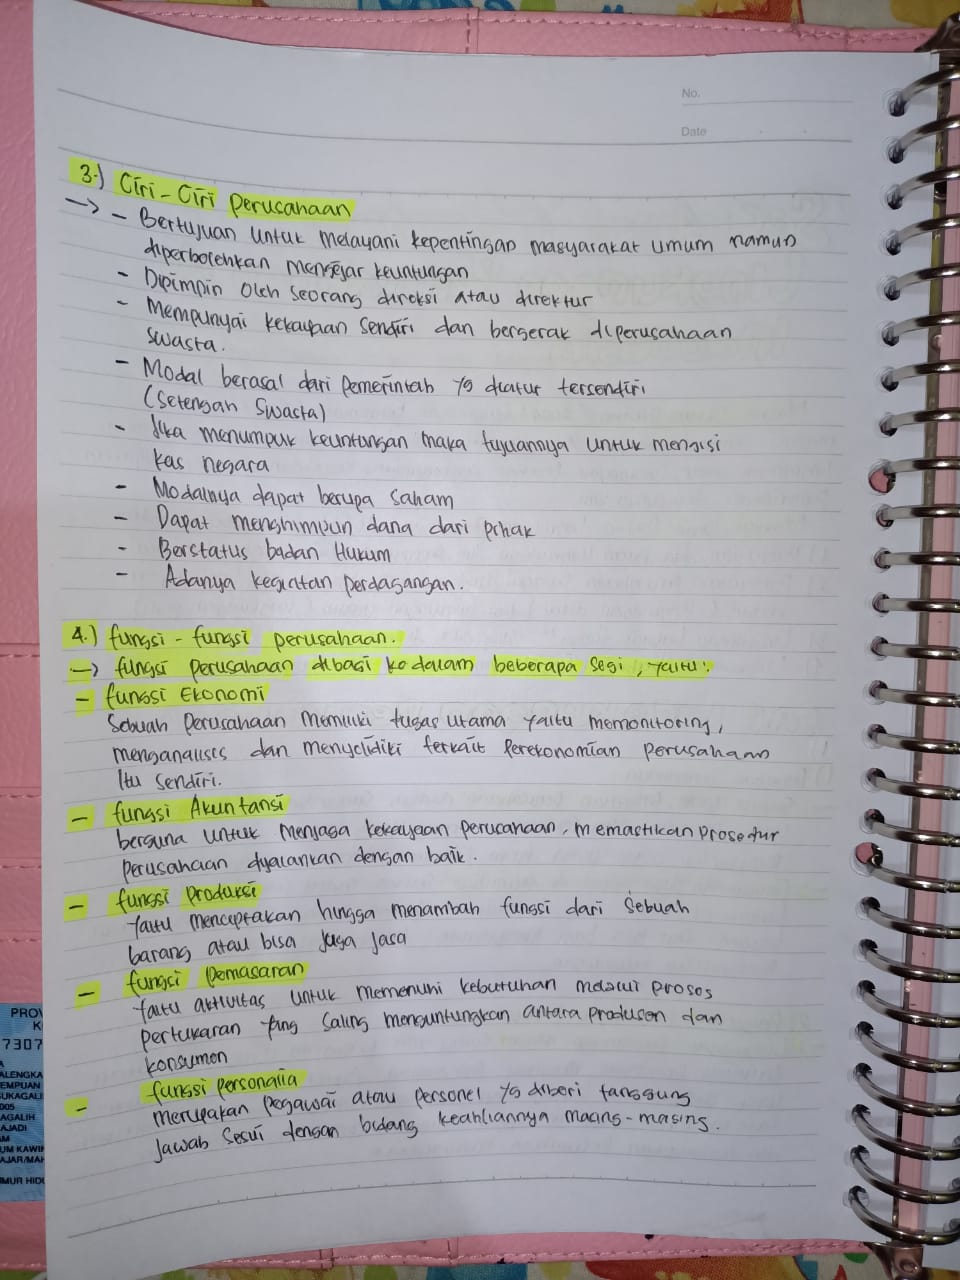 No.
Date
3.) Ciri-Ciri Perusahaan
-> - Bertujuan untuk melayani kepentingan masyarakat umum namun
diperbolehkan mengejar keuntungan
- Dipimpin oleh seorang direksi atau direktur
- Mempunyai kekayaan sendiri dan bergerak diperusahaan
swasta.
- Modal berasal dari pemerintah yg diatur tersendiri
(Setengah Swasta)
- Jika menumpuk keuntungan maka tujuannya untuk mengisi
kas negara
- Modalnya dapat berupa saham
- Dapat menghimpun dana dari pihak
- Berstatus badan Hukum
- Adanya kegiatan perdagangan.
4.) fungsi - fungsi perusahaan.
-> fungsi perusahaan dibagi ke dalam beberapa segi, yaitu:
- fungsi Ekonomi
Sebuah perusahaan memiliki tugas utama yaitu memonitoring,
menganalisis dan menyelidiki terkait perekonomian perusahaan
Itu sendiri.
- fungsi Akuntansi
berguna untuk menjaga kekayaan perusahaan, memastikan prosedur
perusahaan dijalankan dengan baik.
- fungsi produksi
Yaitu menciptakan hingga menambah fungsi dari sebuah
barang atau bisa juga jasa
- fungsi pemasaran
Yaitu aktivitas untuk memenuhi kebutuhan melalui proses
pertukaran yang saling menguntungkan antara produsen dan
konsumen
- fungsi personalia
merupakan pegawai atau personel yg diberi tanggung
jawab sesui dengan bidang keahliannya masing-masing.
PROV
K
7307
ALENGKA
EMPUAN
SUKAGALI
005
AGALIH
AJADI
AM
UM KAWIN
AJAR/MAH